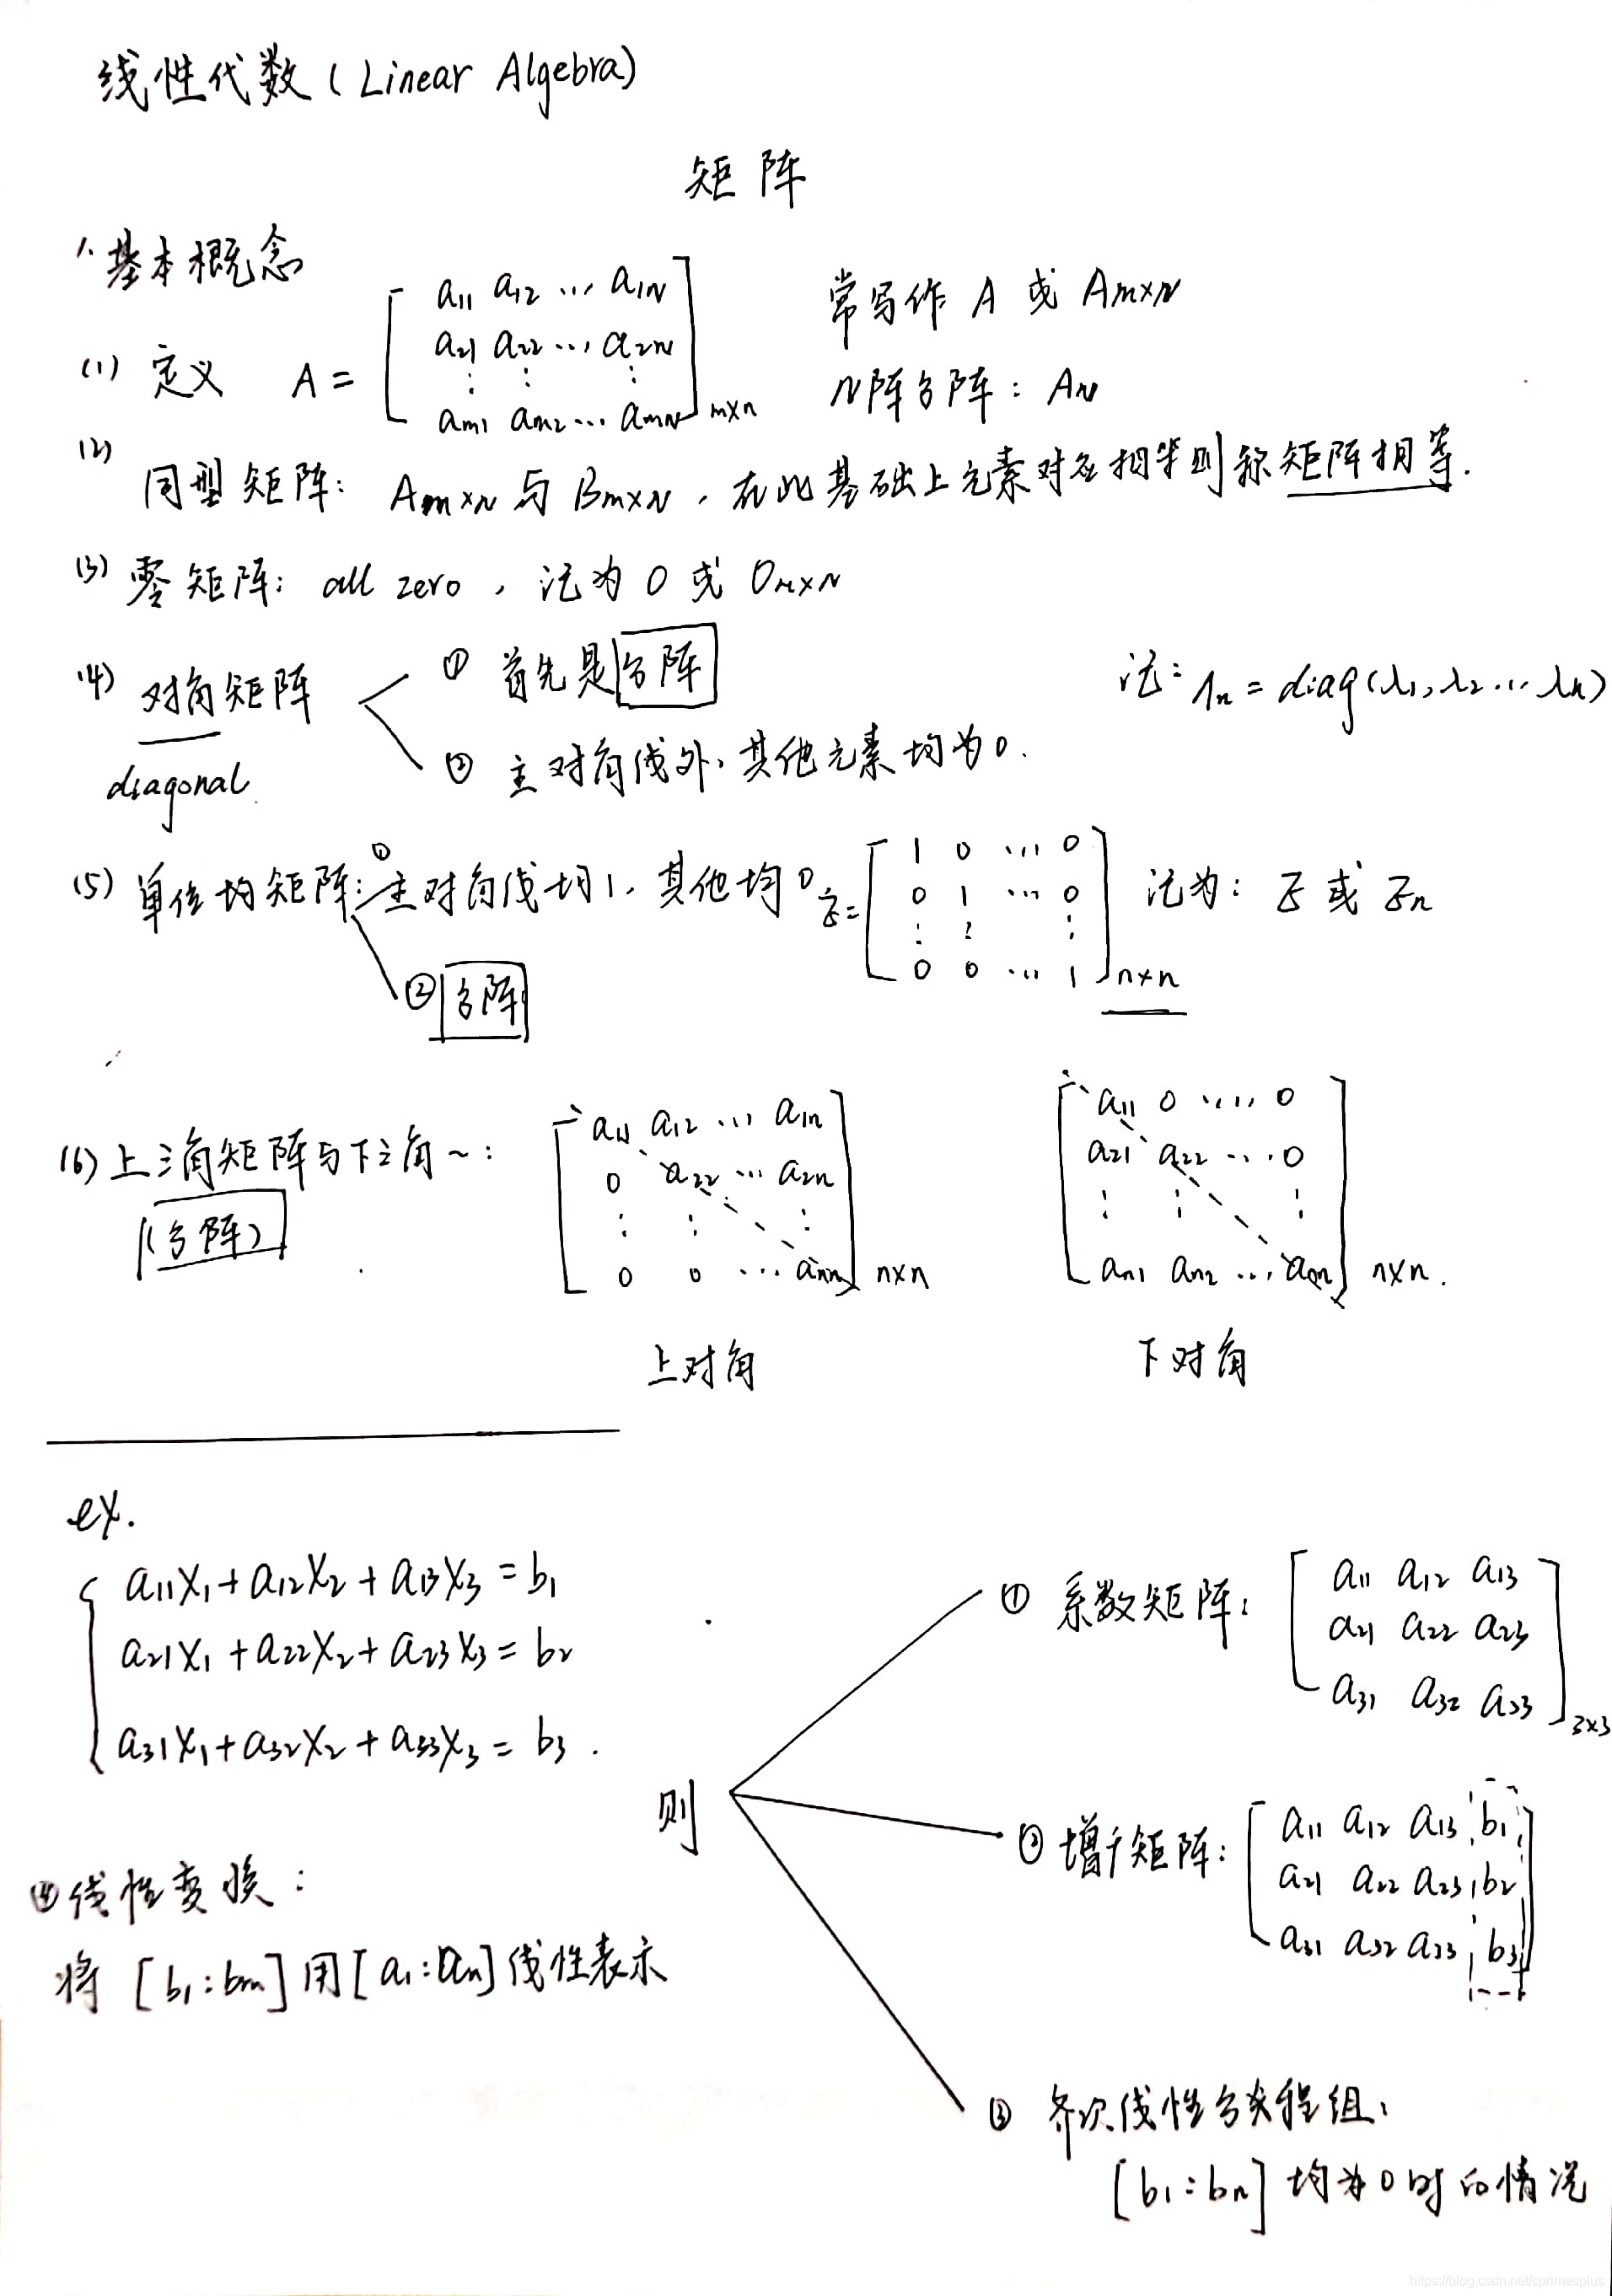 线性代数 (Linear Algebra)
矩阵
1. 基本概念
(1) 定义 A = [ a11 a12 ... a1N 常写作 A 或 Am×N
a21 a22 ... a2N
⋮ ⋮ ⋮ N阵方阵: AN
am1 am2 ... amN ] m×n
(2) 同型矩阵: Am×N 与 Bm×N, 在此基础上元素对应相等则称矩阵相等.
(3) 零矩阵: all zero, 记为 O 或 Om×N
(4) 对角矩阵 ① 首先是方阵 记: Λn = diag(λ1, λ2 ... λn)
diagonal ② 主对角线外, 其他元素均为0.
(5) 单位均矩阵: ① 主对角线均1, 其他均0 E = [ 1 0 ... 0 记为: E 或 En
0 1 ... 0
⋮ ⋮ ⋮
0 0 ... 1 ] n×n
② 方阵
(6) 上三角矩阵与下三角~:
(方阵)
[ a11 a12 ... a1n
0 a22 ... a2n
⋮ ⋮ ⋮
0 0 ... ann ] n×n
上对角
[ a11 0 ..... 0
a21 a22 ... 0
⋮ ⋮ ⋮
an1 an2 ... ann ] n×n.
下对角
ex.
{ a11x1 + a12x2 + a13x3 = b1
a21x1 + a22x2 + a23x3 = b2
a31x1 + a32x2 + a33x3 = b3.
则
① 系数矩阵: [ a11 a12 a13
a21 a22 a23
a31 a32 a33 ] 3×3
② 增广矩阵: [ a11 a12 a13 b1
a21 a22 a23 b2
a31 a32 a33 b3 ]
③ 齐次线性方程组:
[b1:bn] 均为0时的情况
④ 线性变换:
将 [b1:bm] 用 [a1:an] 线性表示
https://blog.csdn.net/cprimesplus